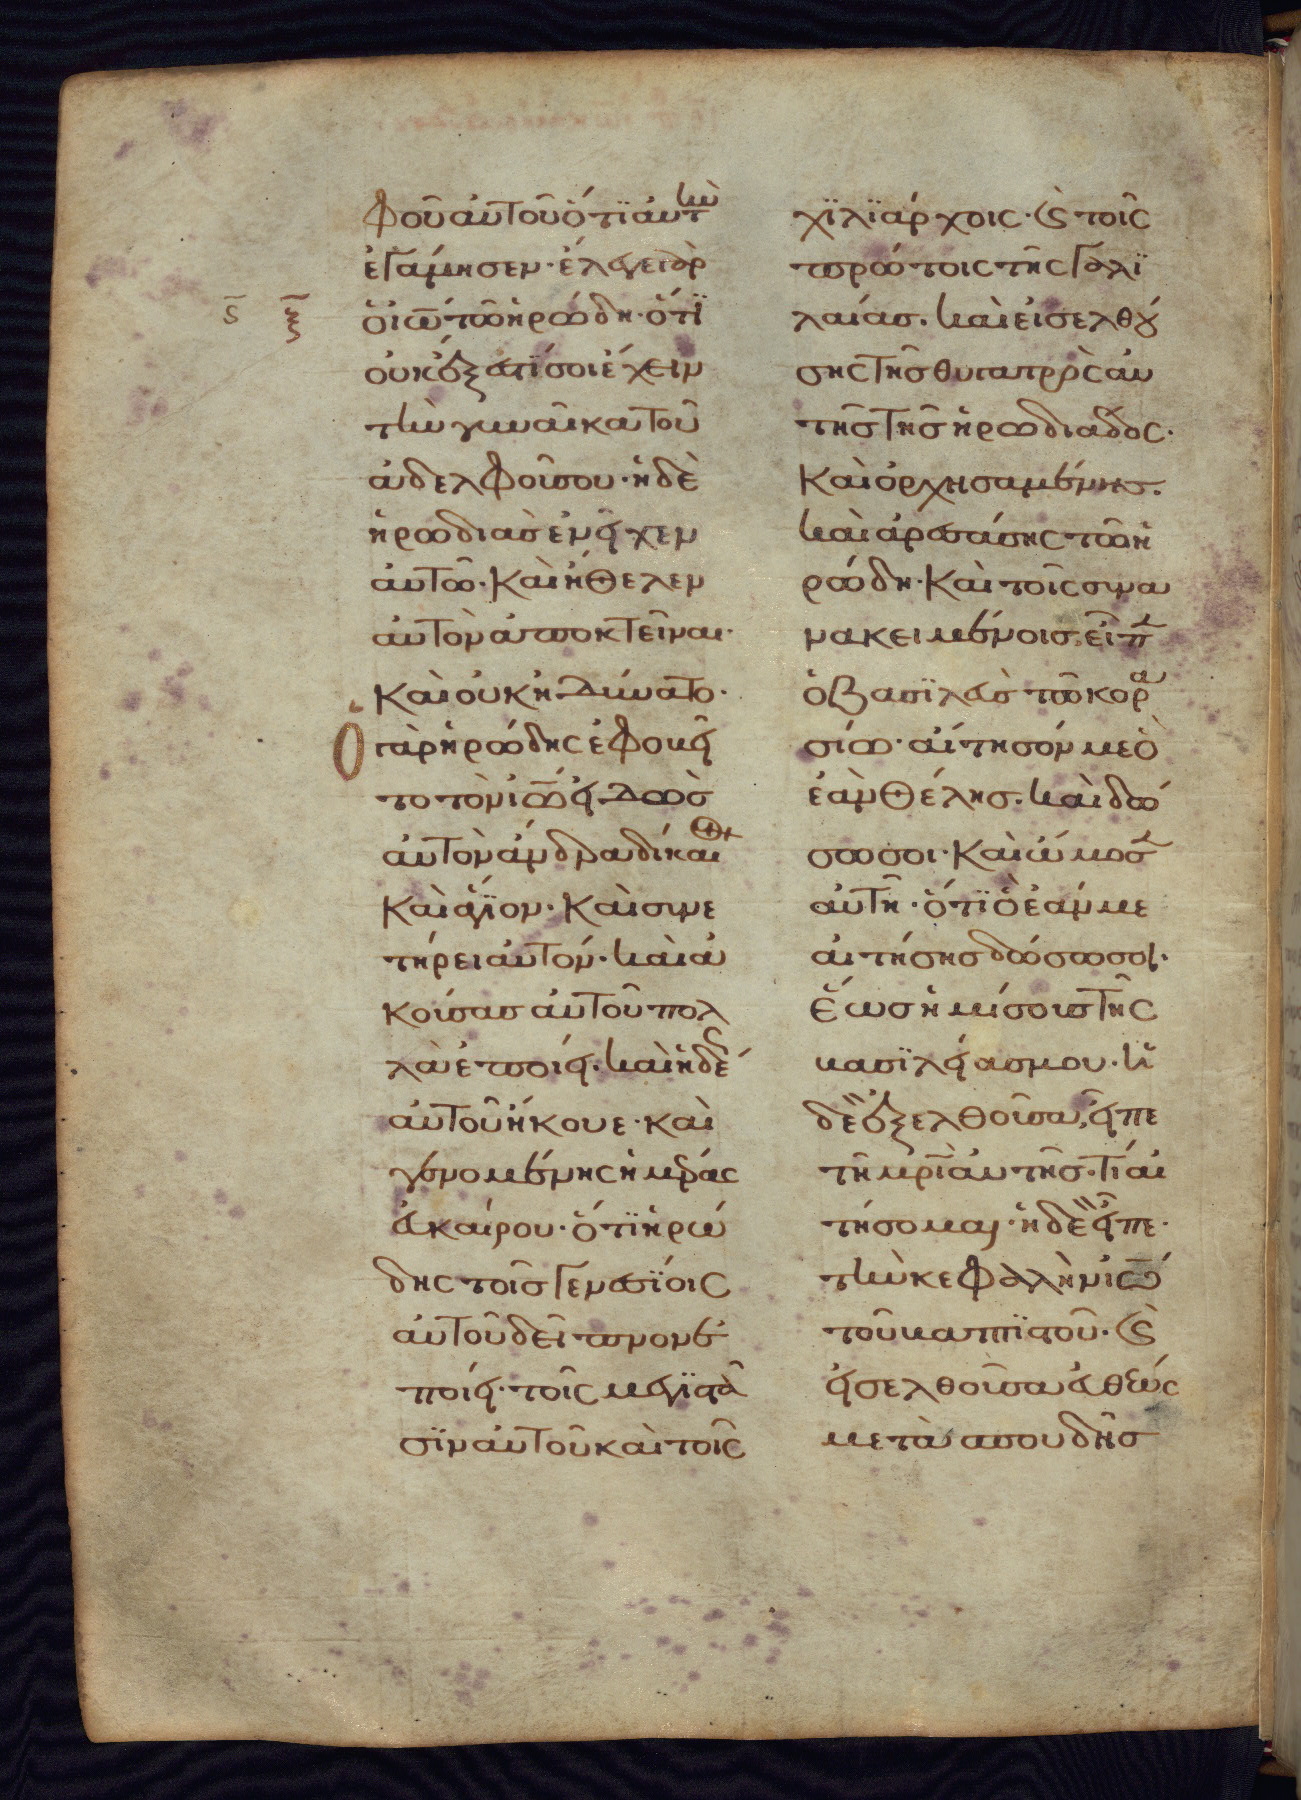 φοῦ αὐτοῦ ὅτϊ αὐτὴν
ἐγάμησεν· ἔλεγε γὰρ
ὁ ἰω̅ τῶ ἡρώδη· ὅτϊ
ϛ̅ ξ̅
οὐκ ἔξεστϊ σοι ἔχειν
τὴν γυναῖκα τοῦ
ἀδελφοῦ σου· ἡ δὲ
ἡρωδιὰσ ἐνεῖχεν
αὐτῶ· καὶ ἤθελεν
αὐτὸν ἀποκτεῖναι·
καὶ οὐκ ἠδύνατο·
Ὁ γὰρ ἡρώδης ἐφοβεῖ
το τὸν ἰω̅· εἰδὼσ
αὐτὸν ἄνδρα δίκαιον
καὶ ἅγϊον· καὶ συνε
τήρει αὐτόν· καὶ ἀ
κούσασ αὐτοῦ πολ
λὰ ἐποίει· καὶ ἡδέως
αὐτοῦ ἤκουε· καὶ
γενομένης ἡμέρας
εὐκαίρου· ὅτϊ ἡρώ
δης τοῖσ γενεσϊοις
αὐτοῦ δεῖπνον ἐ
ποίει· τοῖς μεγϊστᾶ
σϊν αὐτοῦ καὶ τοῖς
χϊλϊάρχοις· καὶ τοῖς
πρώτοις τῆς γαλϊ
λαίασ· καὶ εἰσελθού
σης τῆσ θυγατρὸς αὐ
τῆσ τῆσ ἡρωδιάδος·
καὶ ὀρχησαμένησ·
καὶ ἀρεσάσης τῶ ἡ
ρώδη· καὶ τοῖς συνα
νακειμένοισ· εἶπεν
ὁ βασϊλεὺσ τῶ κορα
σίω· αἴτησόν με ὃ
ἐὰν θέλησ· καὶ δώ
σω σοι· καὶ ὤμοσεν
αὐτῆ· ὅτϊ ὃ ἐάν με
αἰτήσησ δώσω σοι·
ἕωσ ἡμίσουσ τῆς
βασϊλείασ μου· ἡ
δὲ ἐξελθοῦσα, εἶπε
τῆ μρῑ αὐτῆσ· τί αἰ
τήσομαι· ἡ δὲ εἶπε·
τὴν κεφαλὴν ἰω̅
τοῦ βαπτϊστοῦ· καὶ
εἰσελθοῦσα εὐθέως
μετὰ σπουδῆσ